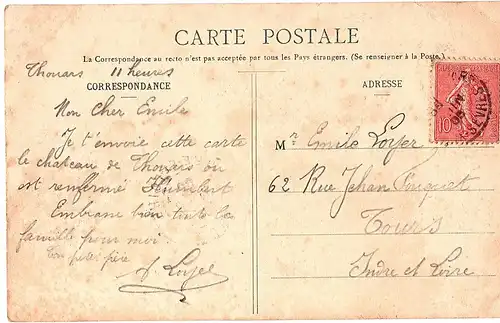 CARTE POSTALE
La Correspondance au recto n'est pas acceptée par tous les Pays étrangers. (Se renseigner à la Poste.)
Thouars 11 heures
CORRESPONDANCE
Mon cher Emile
Je t'envoie cette carte
le chateau de Thouars ou
est renfermé
Embrasse bien toute la
famille pour moi
Ton petit père
A. Loyer
ADRESSE
Mr Emile Loyer
62 Rue Jehan Fouquet
Tours
Indre et Loire
10